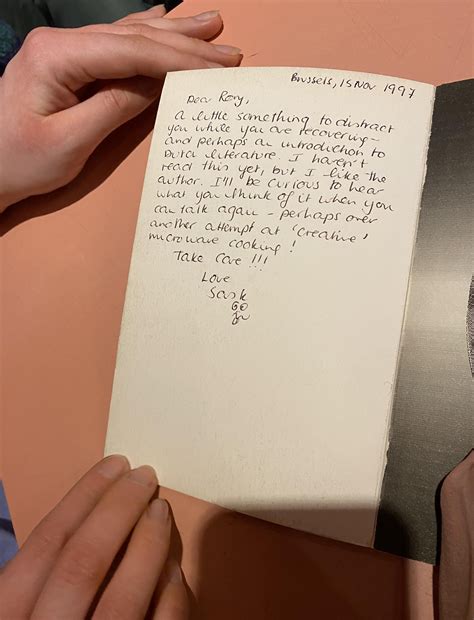 Brussels, 15 Nov 1997
Dear Rory,
A little something to distract
you while you are recovering –
and perhaps an introduction to
Dutch literature. I haven't
read this yet, but I like the
author. I'll be curious to hear
what you think of it when you
can talk again – perhaps over
another attempt at 'creative'
microwave cooking!
Take care!!!
Love
Sask